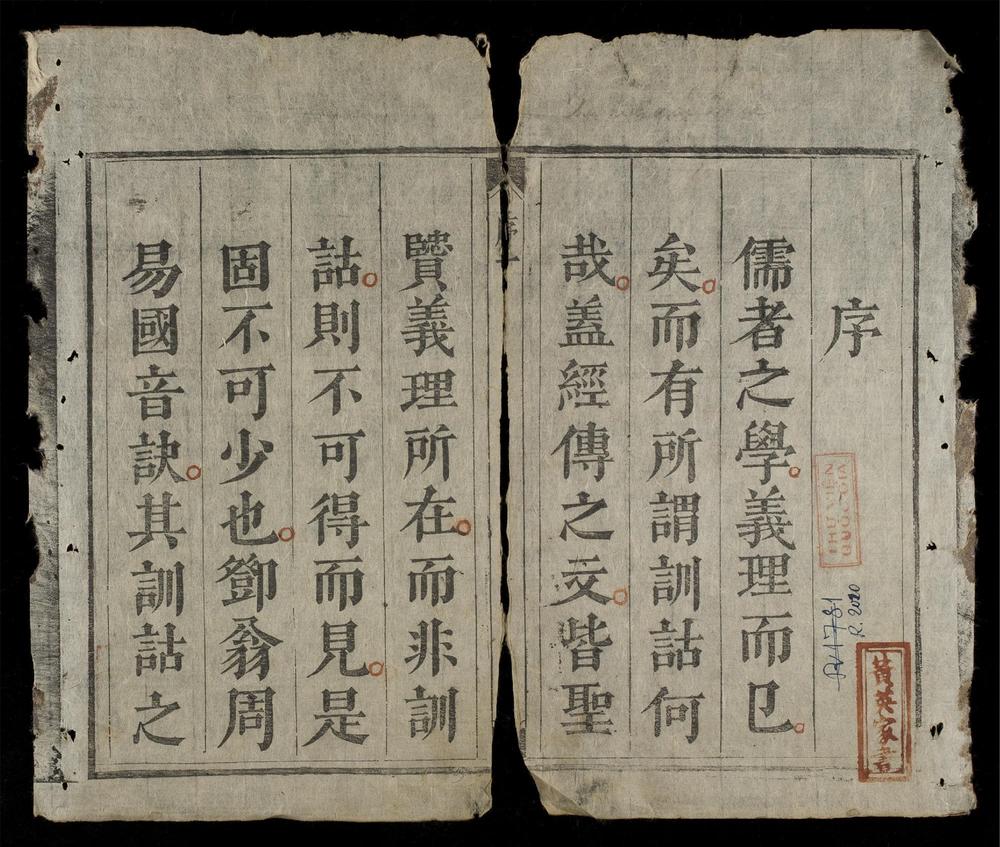 序
儒者之學義理而已
矣而有所謂訓詁何
哉蓋經傳之文皆聖
序
賢義理所在而非訓
詁則不可得而見是
固不可少也鄧翁周
易國音訣其訓詁之
R. 2020
黃英家書